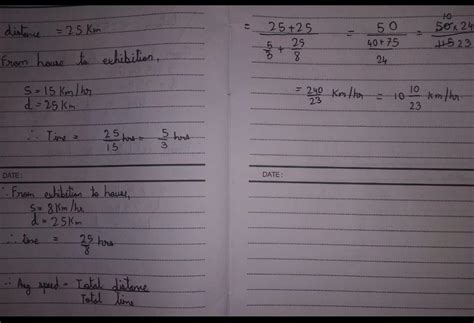 distance = 25 Km
From house to exhibition,
s = 15 Km/hr
d = 25 Km
∴ Time = 25/15 hrs = 5/3 hrs
DATE:
∴ From exhibition to house,
s = 8 Km/hr
d = 25 Km
∴ time = 25/8 hrs
∴ Avg speed = Total distance / Total time
= (25 + 25) / (5/3 + 25/8) = 50 / ((40 + 75)/24) = 50 × 24 / 115 10 23
= 240/23 Km/hr = 10 10/23 Km/hr
DATE: